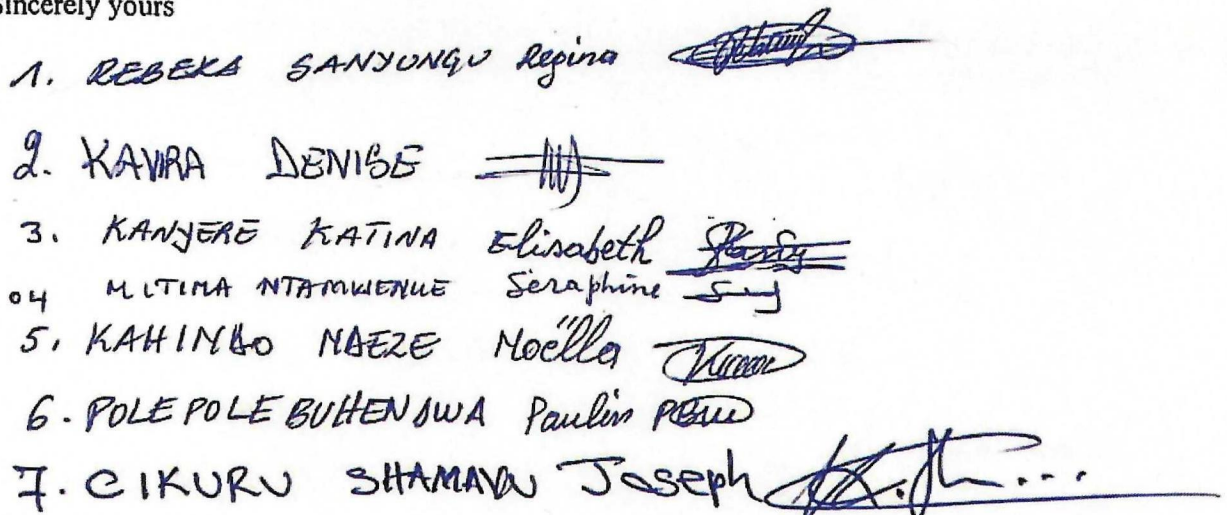 Sincerely yours
1. REBEKA SANYUNGU Regina
2. KAVIRA DENISE
3. KANYERE KATINA Elisabeth
04 MITIMA NTAMWENUE Séraphine
5. KAHINDO NDEZE Noëlla
6. POLEPOLE BUHENDWA Paulin PBW
7. CIKURU SHAMAVU Joseph